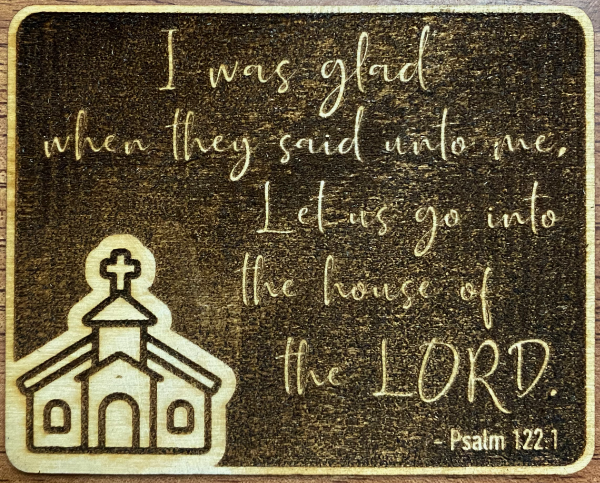 I was glad
when they said unto me,
Let us go into
the house of
the LORD.
- Psalm 122:1